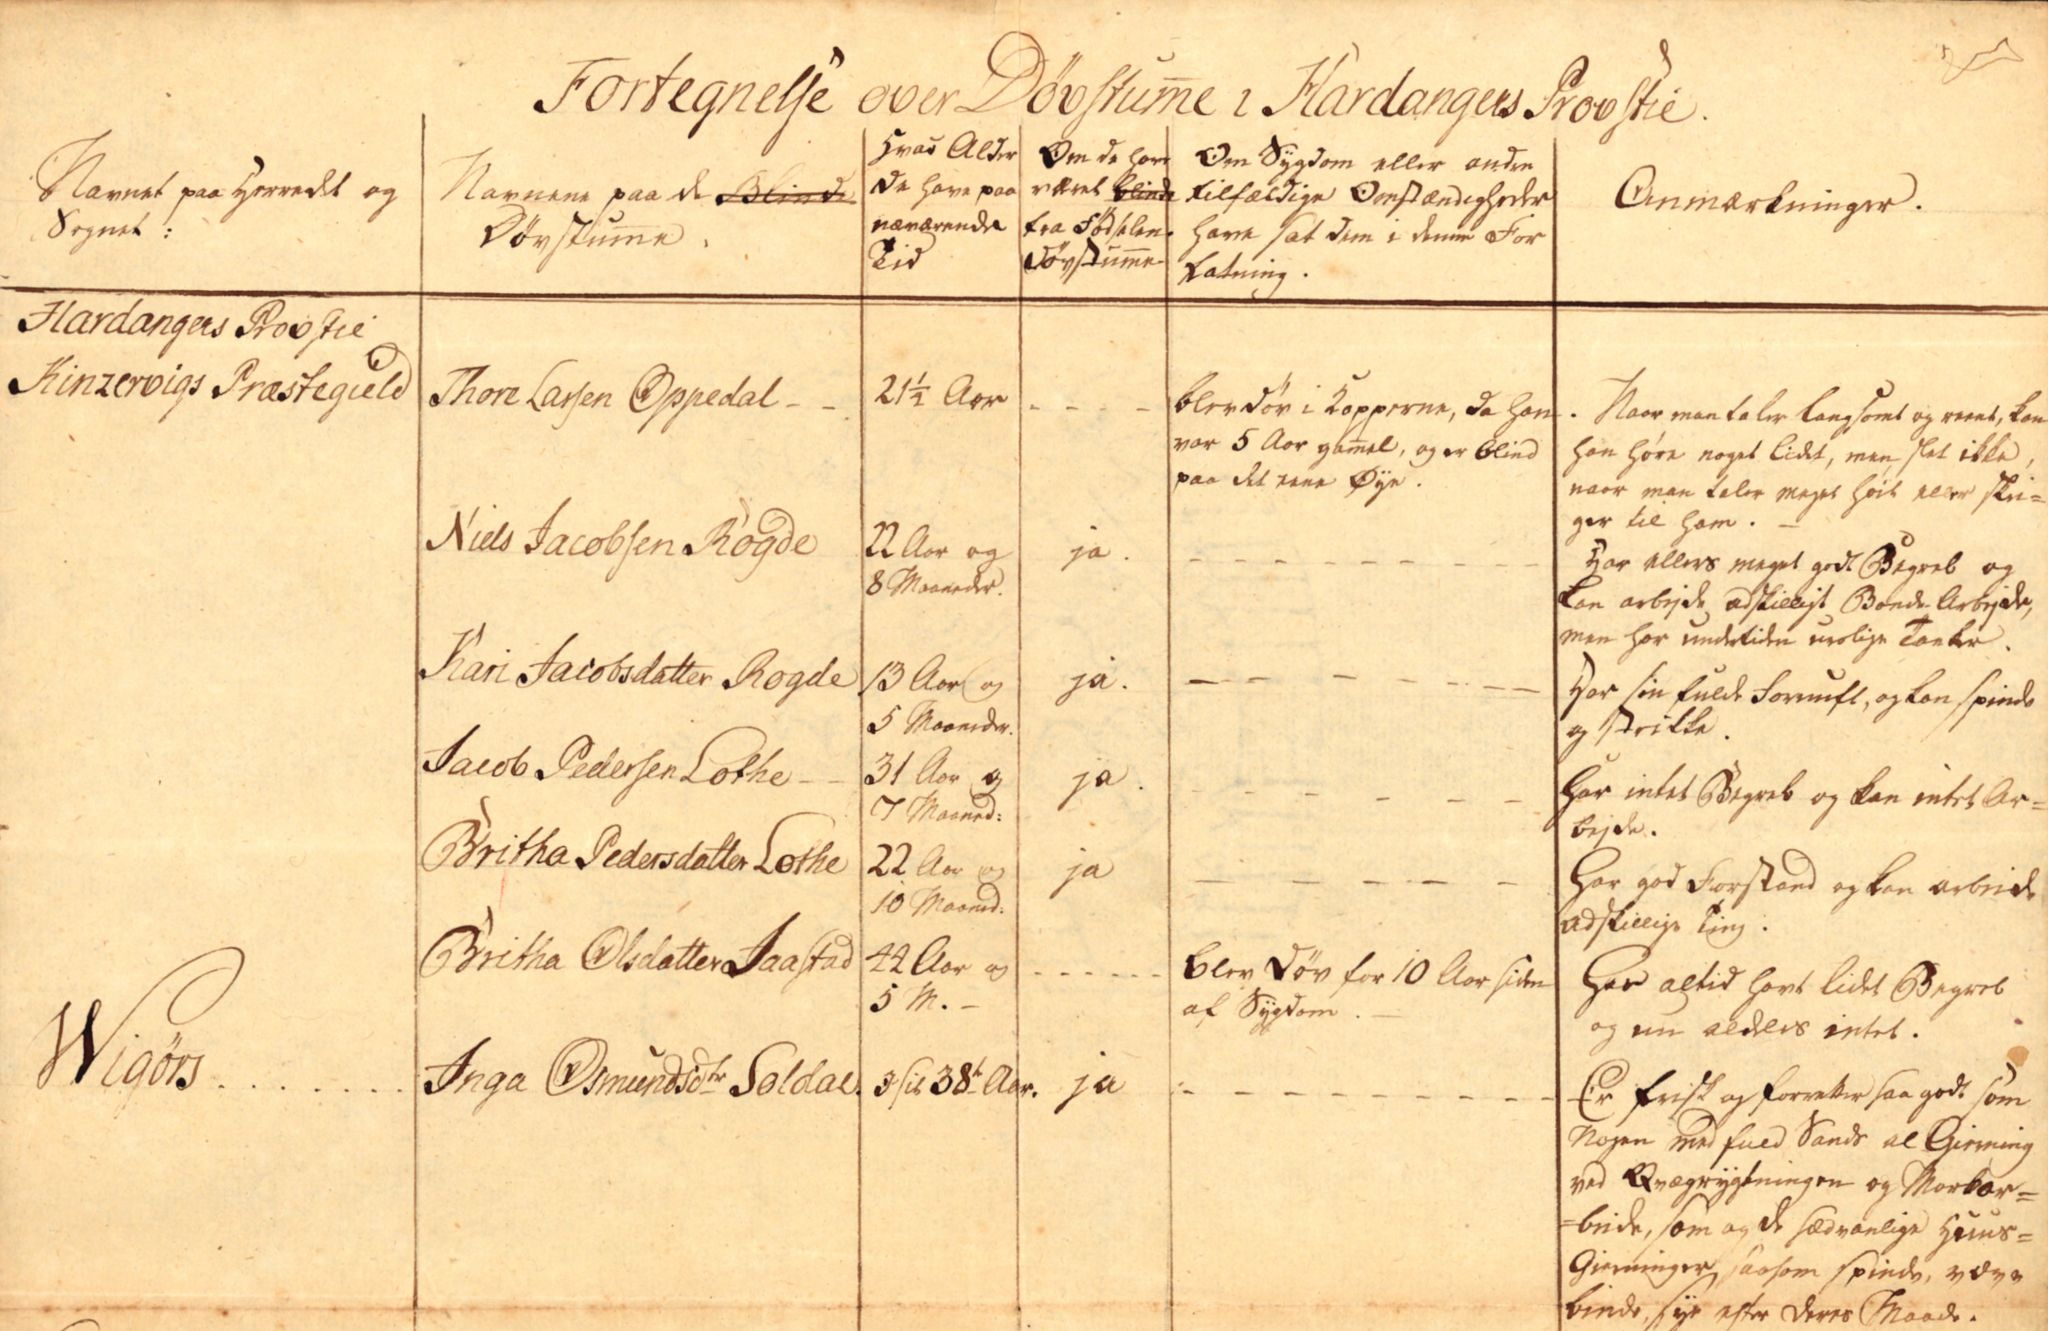 Fortegnelse over Døvstume i Hardangers Provstie.
Navnet paa Herredet og
Sognet:
Navnene paa de Blinde
Døvstume.
Hvad Alder
de have paa
nærværende
Tid
Om de have
været blinde
fra Fødselen
Døvstumme
Om Sÿgdom eller andre
tilfældige Omstændigheder
have sat dem i denne For
fatning.
Anmærkninger.
Hardangers Provstie
Kinzervigs Præstegield
Thore Larsen Oppedal - -
21½ Aar
- - - -
blev døv i Kopperne, da han
var 5 Aar gamel, og er blind
paa det eene Øye.
Naar man taler langsomt og reent, kan
han høre noget lidet, men slet ikke,
naar man taler meget høit eller skri=
ger til ham. -
Niels Jacobsen Rogde
22 Aar og
8 Maaneder.
ja.
Har ellers meget godt Begreb og
kan arbejde adskilligt Bonde-Arbejde,
men har undertiden urolige Tanker.
Kari Jacobsdatter Rogde
13 Aar og
5 Maaneder.
ja.
Har sin fulde Fornuft, og kan spinde
og strikke.
Jacob Pedersen Lothe - -
31 Aar og
7 Maaned:
ja.
Har intet Begreb og kan intet Ar=
bejde.
Britha Pedersdatter Lothe
22 Aar og
10 Maaned:
ja
Har god Forstand og kan arbeide
adskillige Ting.
Britha Olsdatter Jaastad
42 Aar og
5 M. -
- - - - - -
blev døv for 10 Aar siden
af Sÿgdom. -
Har altid havt lidet Begreb
og nu aldeles intet.
Wigørs . . . . . . .
Inga Osmundsdtr Soldal.
38te Aar.
ja
Er frisk og forretter saa godt som
Nogen med fuld Sands al Gierning
ved Qvægrygtningen og Markar=
=beide, som og de sædvanlige Huus=
Gierninger, saasom spinde, væve
binde, sÿe efter deres Maade.